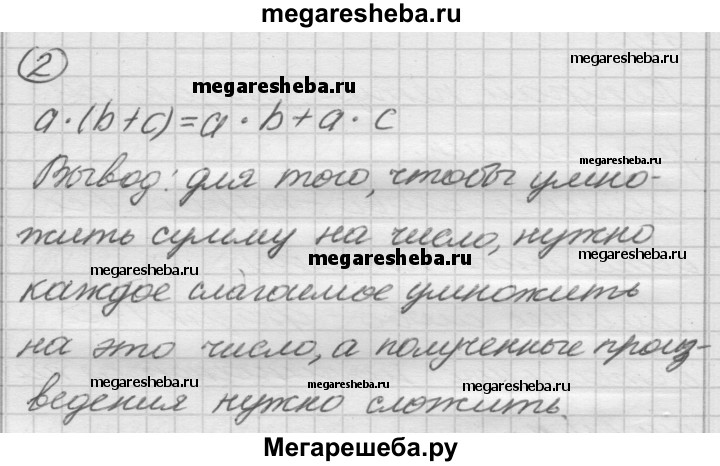 megaresheba.ru
2
megaresheba.ru
megaresheba.ru
a·(b+c)=a·b+a·c
Вывод: для того, чтобы умно-
megaresheba.ru
жить сумму на число, нужно
megaresheba.ru
megaresheba.ru
megaresheba.ru
каждое слагаемое умножить
на это число, а полученные произ-
megaresheba.ru
megaresheba.ru
megaresheba.ru
ведения нужно сложить.
Мегарешеба.ру